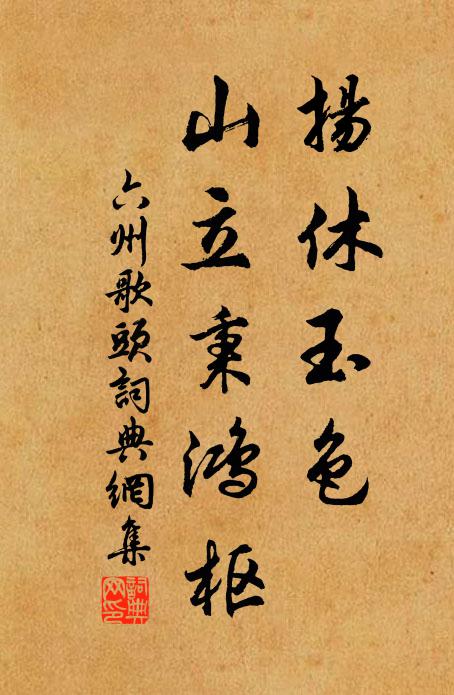 揚休玉色
山立秉鴻枢
六州歌頭詞典網集
詞典网印